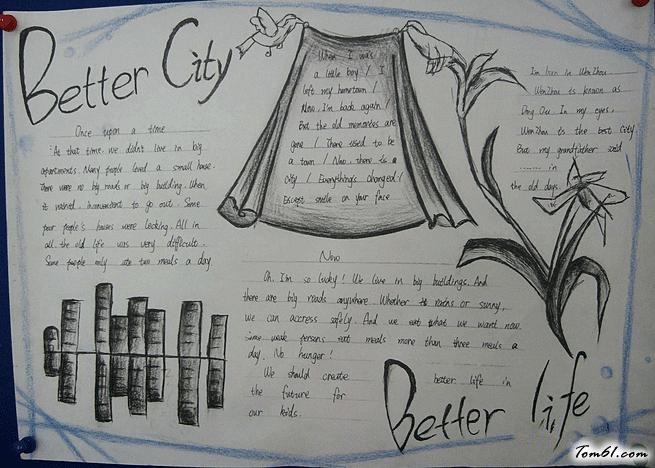 Better City
Once upon a time
As that time, we didn't love in big
apartments. Many people loved a small house.
There were no big roads or big building. When
it rained, inconvenient to go out. Some
poor people's houses were leaking. All in
all, the old life was very difficult.
Some people only ate two meals a day
When I was
a little boy / I
left my hometown /
Now, I'm back again /
But the old memories are
gone / There used to be
a town / Now, there is a
city / Everything's changed /
Except smile on your face
I'm born in WenZhou
WenZhou is known as
Dong Ou. In my eyes,
WenZhou is the best city.
But my grandfather said
in
the old days
Now
Oh, I'm so lucky! We live in big buildings. And
there are big roads anywhere. Whether is rains or sunny,
we can accress safely. And we eat what we want now.
Some persons eat meals more than three meals a
day. No hunger!
We should create better life in
the future for
our kids.
Better life
Tom61.com